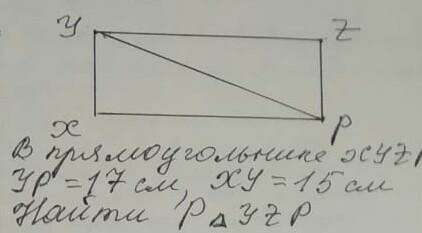 У Z
Х Р
В прямоугольнике ХУZР
УР = 17 см, ХУ = 15 см
Найти Р△УZР